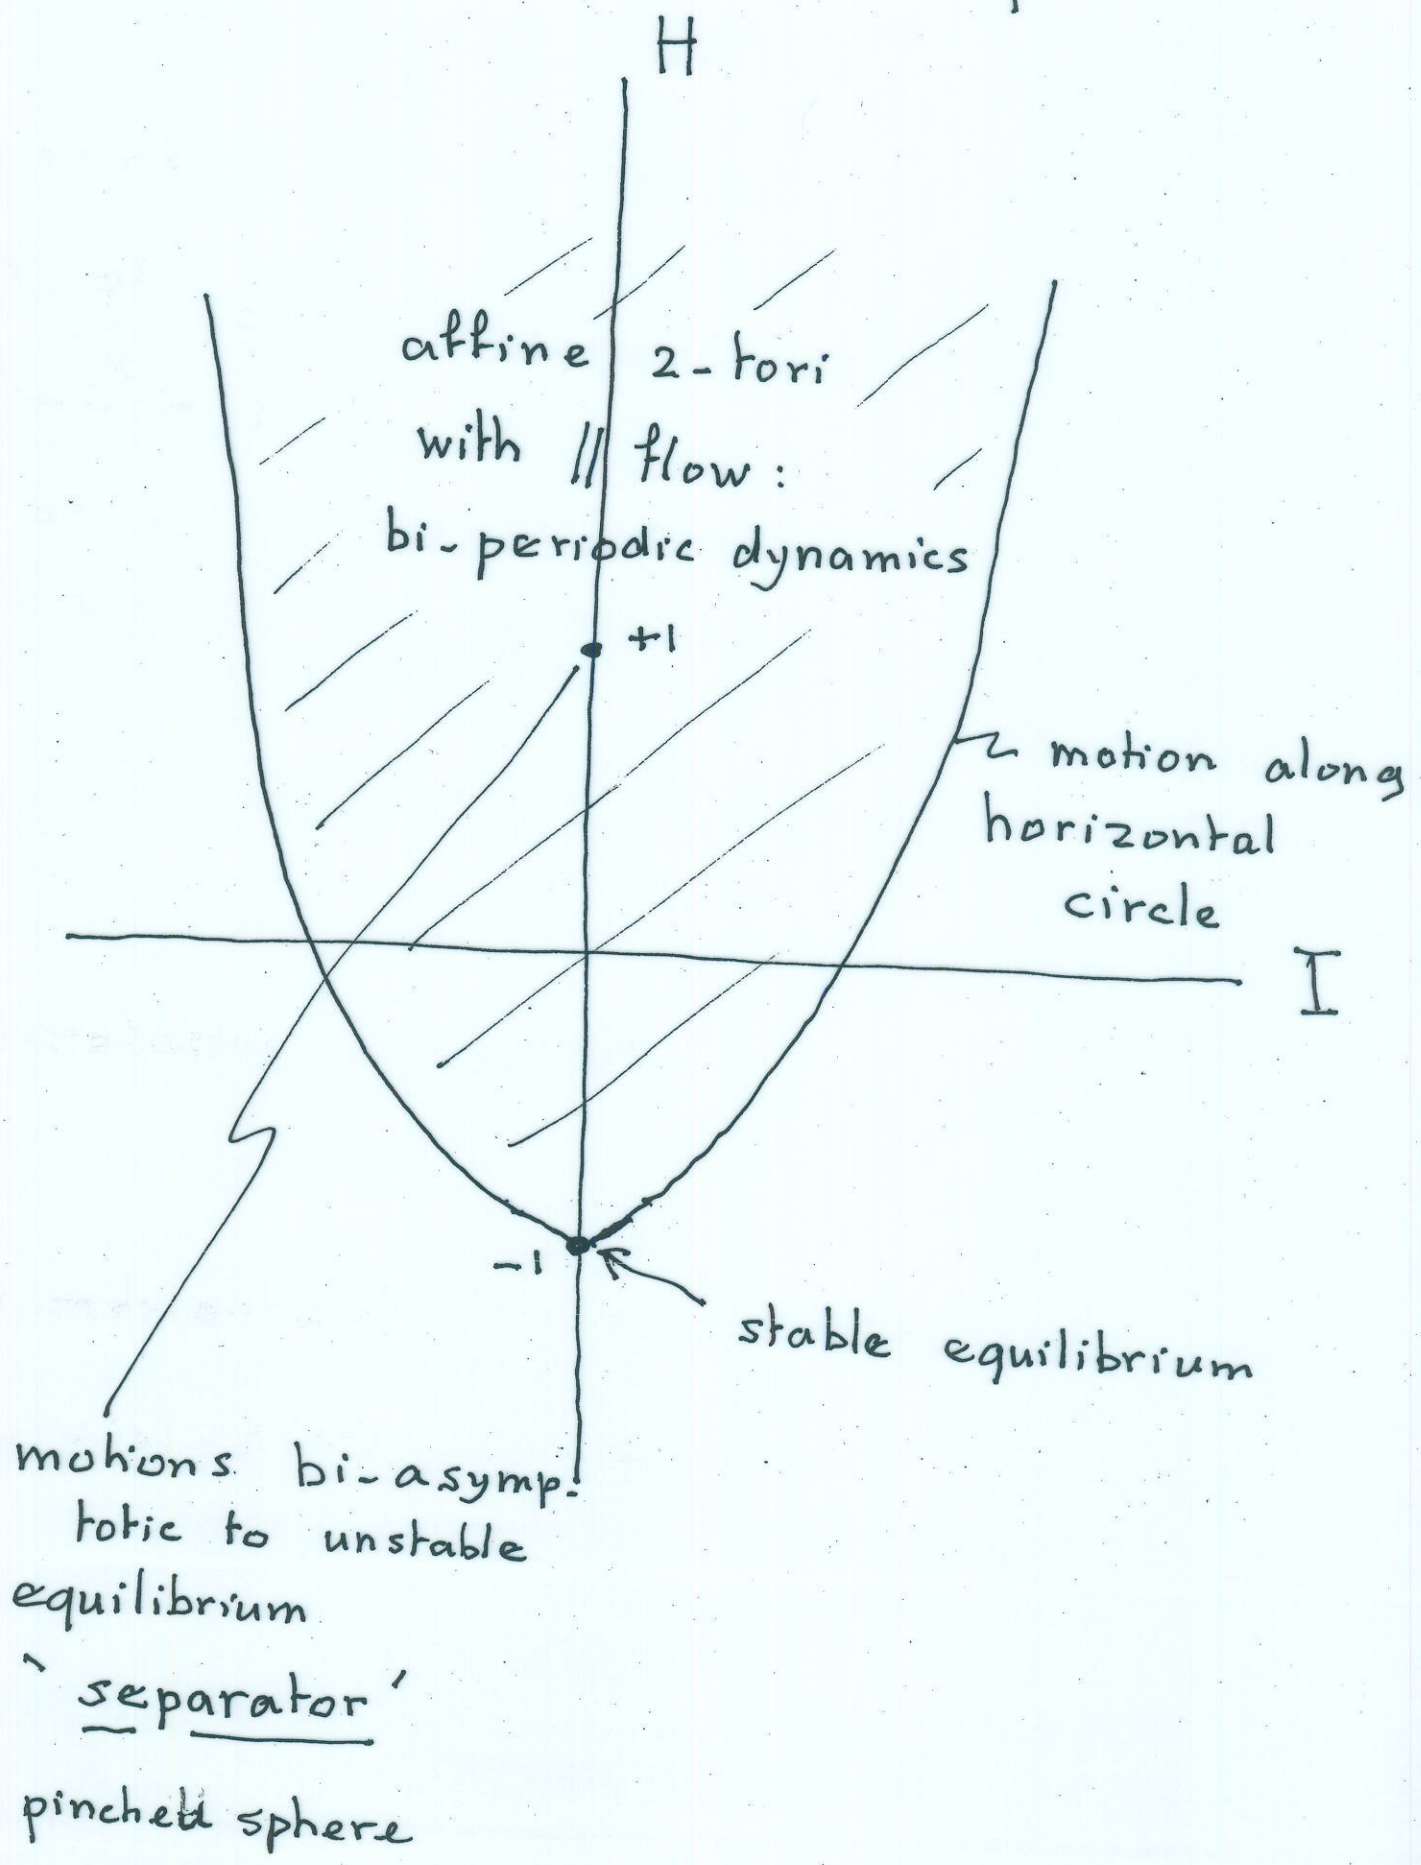 H
affine 2-tori
with // flow:
bi-periodic dynamics
+1
motion along
horizontal
circle
I
-1
stable equilibrium
motions bi-asymp-
totic to unstable
equilibrium
'separator'
pinched sphere